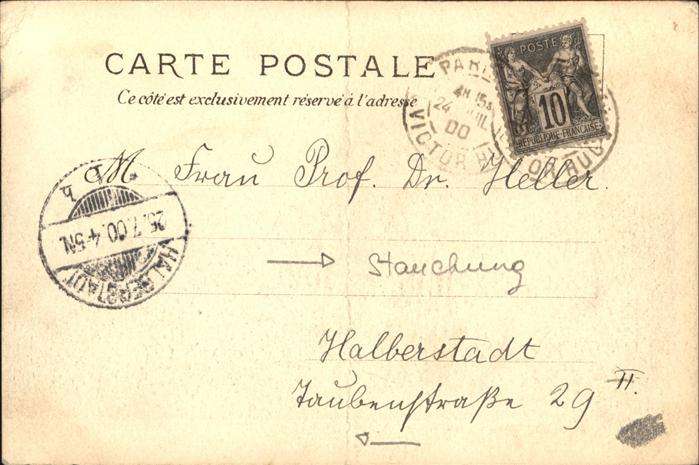 CARTE POSTALE
Ce côté est exclusivement réservé à l'adresse
PARIS
4E 15
24 JUIL
00
VICTOR HUGO
POSTE
10
REPUBLIQUE FRANÇAISE
M. Frau Prof. Dr. Heller.
HALBERSTADT
25.7.00.4-5N.
Stauchung
Halberstadt
Taubenstraße 29 II.